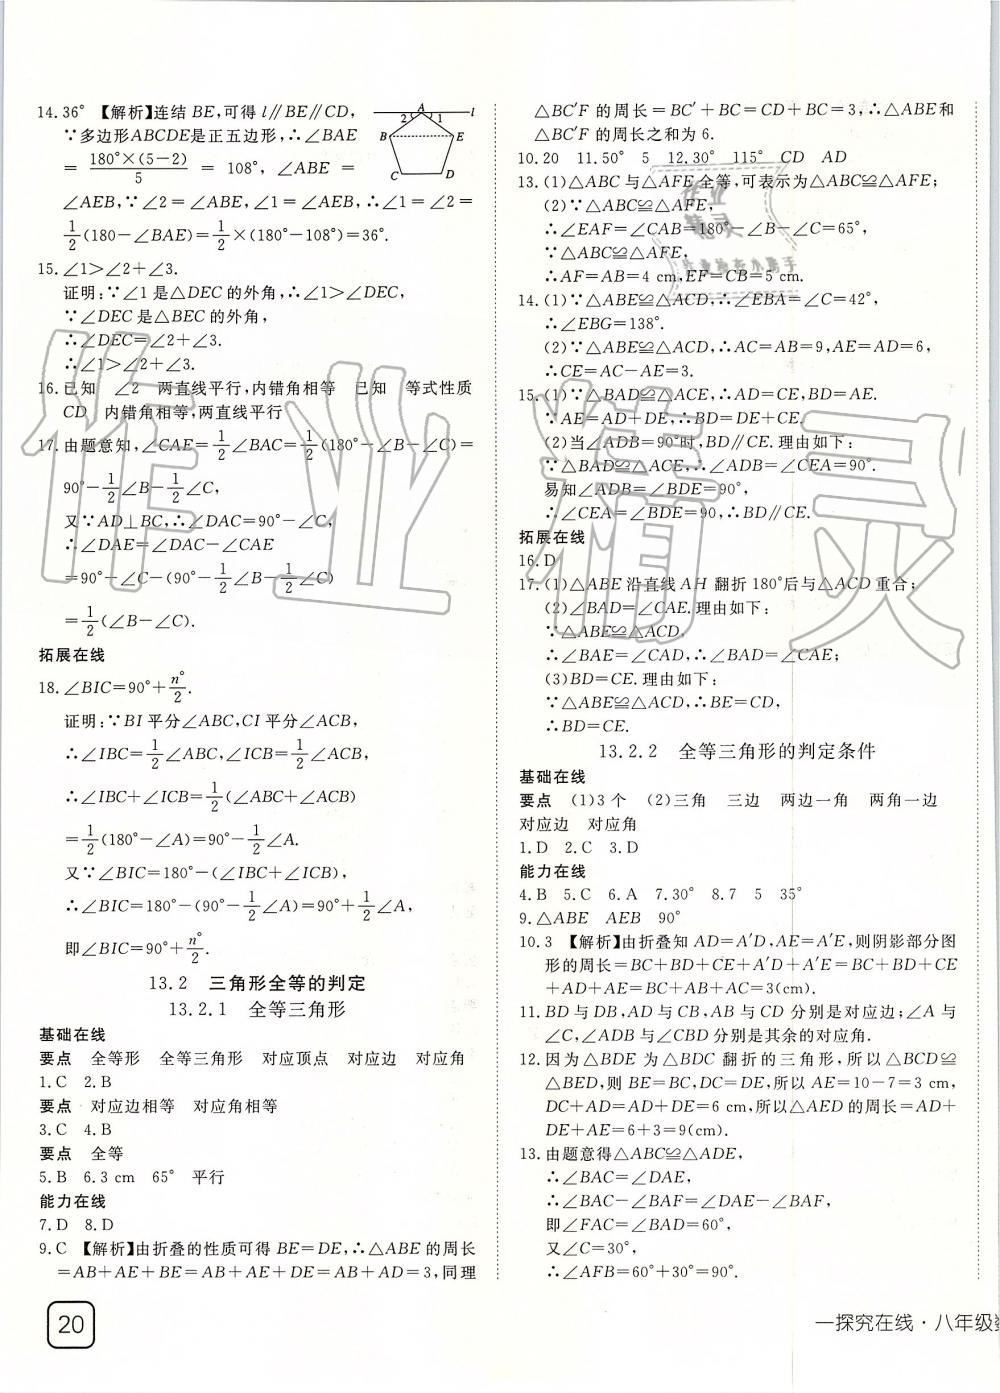 14.36° 【解析】连结BE,可得l∥BE∥CD,
∵多边形ABCDE是正五边形,∴∠BAE
=180°×(5-2)/5=108°,∠ABE=
∠AEB,∵∠2=∠ABE,∠1=∠AEB,∴∠1=∠2=
1/2(180-∠BAE)=1/2×(180°-108°)=36°.
A l 2 1 B E C D
15.∠1>∠2+∠3.
证明:∵∠1是△DEC的外角,∴∠1>∠DEC,
∵∠DEC是△BEC的外角,
∴∠DEC=∠2+∠3.
∴∠1>∠2+∠3.
16.已知 ∠2 两直线平行,内错角相等 已知 等式性质
CD 内错角相等,两直线平行
17.由题意知,∠CAE=1/2∠BAC=1/2(180°-∠B-∠C)=
90°-1/2∠B-1/2∠C,
又∵AD⊥BC,∴∠DAC=90°-∠C,
∴∠DAE=∠DAC-∠CAE
=90°-∠C-(90°-1/2∠B-1/2∠C)
=1/2(∠B-∠C).
拓展在线
18.∠BIC=90°+n°/2.
证明:∵BI平分∠ABC,CI平分∠ACB,
∴∠IBC=1/2∠ABC,∠ICB=1/2∠ACB,
∴∠IBC+∠ICB=1/2(∠ABC+∠ACB)
=1/2(180°-∠A)=90°-1/2∠A.
又∵∠BIC=180°-(∠IBC+∠ICB),
∴∠BIC=180°-(90°-1/2∠A)=90°+1/2∠A,
即∠BIC=90°+n°/2.
13.2 三角形全等的判定
13.2.1 全等三角形
基础在线
要点 全等形 全等三角形 对应顶点 对应边 对应角
1.C 2.B
要点 对应边相等 对应角相等
3.C 4.B
要点 全等
5.B 6.3 cm 65° 平行
能力在线
7.D 8.D
9.C 【解析】由折叠的性质可得BE=DE,∴△ABE的周长
=AB+AE+BE=AB+AE+DE=AB+AD=3,同理
△BC′F的周长=BC′+BC=CD+BC=3,∴△ABE和
△BC′F的周长之和为6.
10.20 11.50° 5 12.30° 115° CD AD
13.(1)△ABC与△AFE全等,可表示为△ABC≌△AFE;
(2)∵△ABC≌△AFE,
∴∠EAF=∠CAB=180°-∠B-∠C=65°,
∵△ABC≌△AFE,
∴AF=AB=4 cm,EF=CB=5 cm.
14.(1)∵△ABE≌△ACD,∴∠EBA=∠C=42°,
∴∠EBG=138°.
(2)∵△ABE≌△ACD,∴AC=AB=9,AE=AD=6,
∴CE=AC-AE=3.
15.(1)∵△BAD≌△ACE,∴AD=CE,BD=AE.
∵AE=AD+DE,∴BD=DE+CE.
(2)当∠ADB=90°时,BD∥CE.理由如下:
∵△BAD≌△ACE,∴∠ADB=∠CEA=90°.
易知∠ADB=∠BDE=90°,
∴∠CEA=∠BDE=90,∴BD∥CE.
拓展在线
16.D
17.(1)△ABE沿直线AH翻折180°后与△ACD重合;
(2)∠BAD=∠CAE.理由如下:
∵△ABE≌△ACD,
∴∠BAE=∠CAD,∴∠BAD=∠CAE;
(3)BD=CE.理由如下:
∵△ABE≌△ACD,∴BE=CD,
∴BD=CE.
13.2.2 全等三角形的判定条件
基础在线
要点 (1)3个 (2)三角 三边 两边一角 两角一边
对应边 对应角
1.D 2.C 3.D
能力在线
4.B 5.C 6.A 7.30° 8.7 5 35°
9.△ABE AEB 90°
10.3 【解析】由折叠知AD=A′D,AE=A′E,则阴影部分图
形的周长=BC+BD+CE+A′D+A′E=BC+BD+CE
+AD+AE=BC+AB+AC=3(cm).
11.BD与DB,AD与CB,AB与CD分别是对应边;∠A与
∠C,∠ADB与∠CBD分别是其余的对应角.
12.因为△BDE为△BDC翻折的三角形,所以△BCD≌
△BED,则BE=BC,DC=DE,所以AE=10-7=3 cm,
DC+AD=AD+DE=6 cm,所以△AED的周长=AD+
DE+AE=6+3=9(cm).
13.由题意得△ABC≌△ADE,
∴∠BAC=∠DAE,
∴∠BAC-∠BAF=∠DAE-∠BAF,
即∠FAC=∠BAD=60°,
又∠C=30°,
∴∠AFB=60°+30°=90°.
20
一探究在线·八年级
作业精灵
作业
精灵